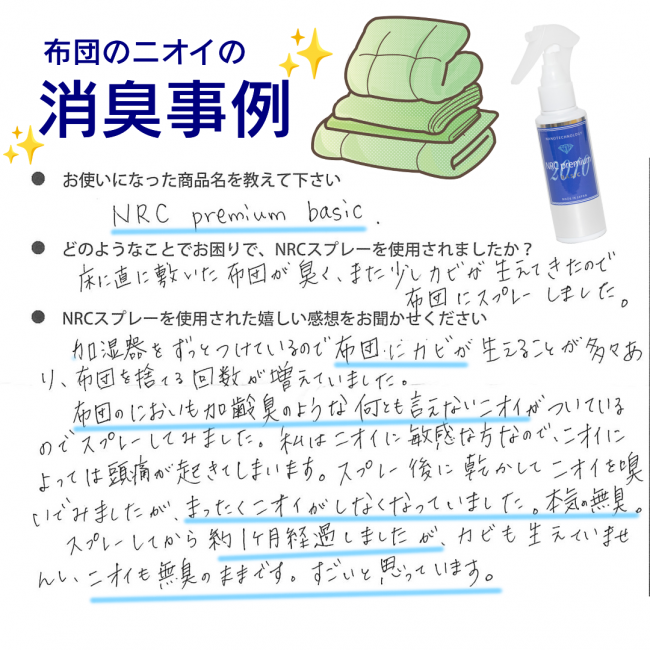 布団のニオイの
消臭事例
NANOTECHNOLOGY
NRC premium
2010
MADE IN JAPAN
● お使いになった商品名を教えて下さい
NRC premium basic.
● どのようなことでお困りで、NRCスプレーを使用されましたか？
床に直に敷いた布団が臭く、また少しカビが生えてきたので
布団にスプレーしました。
● NRCスプレーを使用された嬉しい感想をお聞かせください
加湿器をずっとつけているので布団にカビが生えることが多々あ
り、布団を捨てる回数が増えていました。
布団のにおいも加齢臭のような何とも言えないニオイがついている
のでスプレーしてみました。私はニオイに敏感な方なので、ニオイに
よっては頭痛が起きてしまいます。スプレー後に乾かしてニオイを嗅
いでみましたが、まったくニオイがしなくなっていました。本気の無臭。
スプレーしてから約1ヶ月経過しましたが、カビも生えていませ
んし、ニオイも無臭のままです。すごいと思っています。